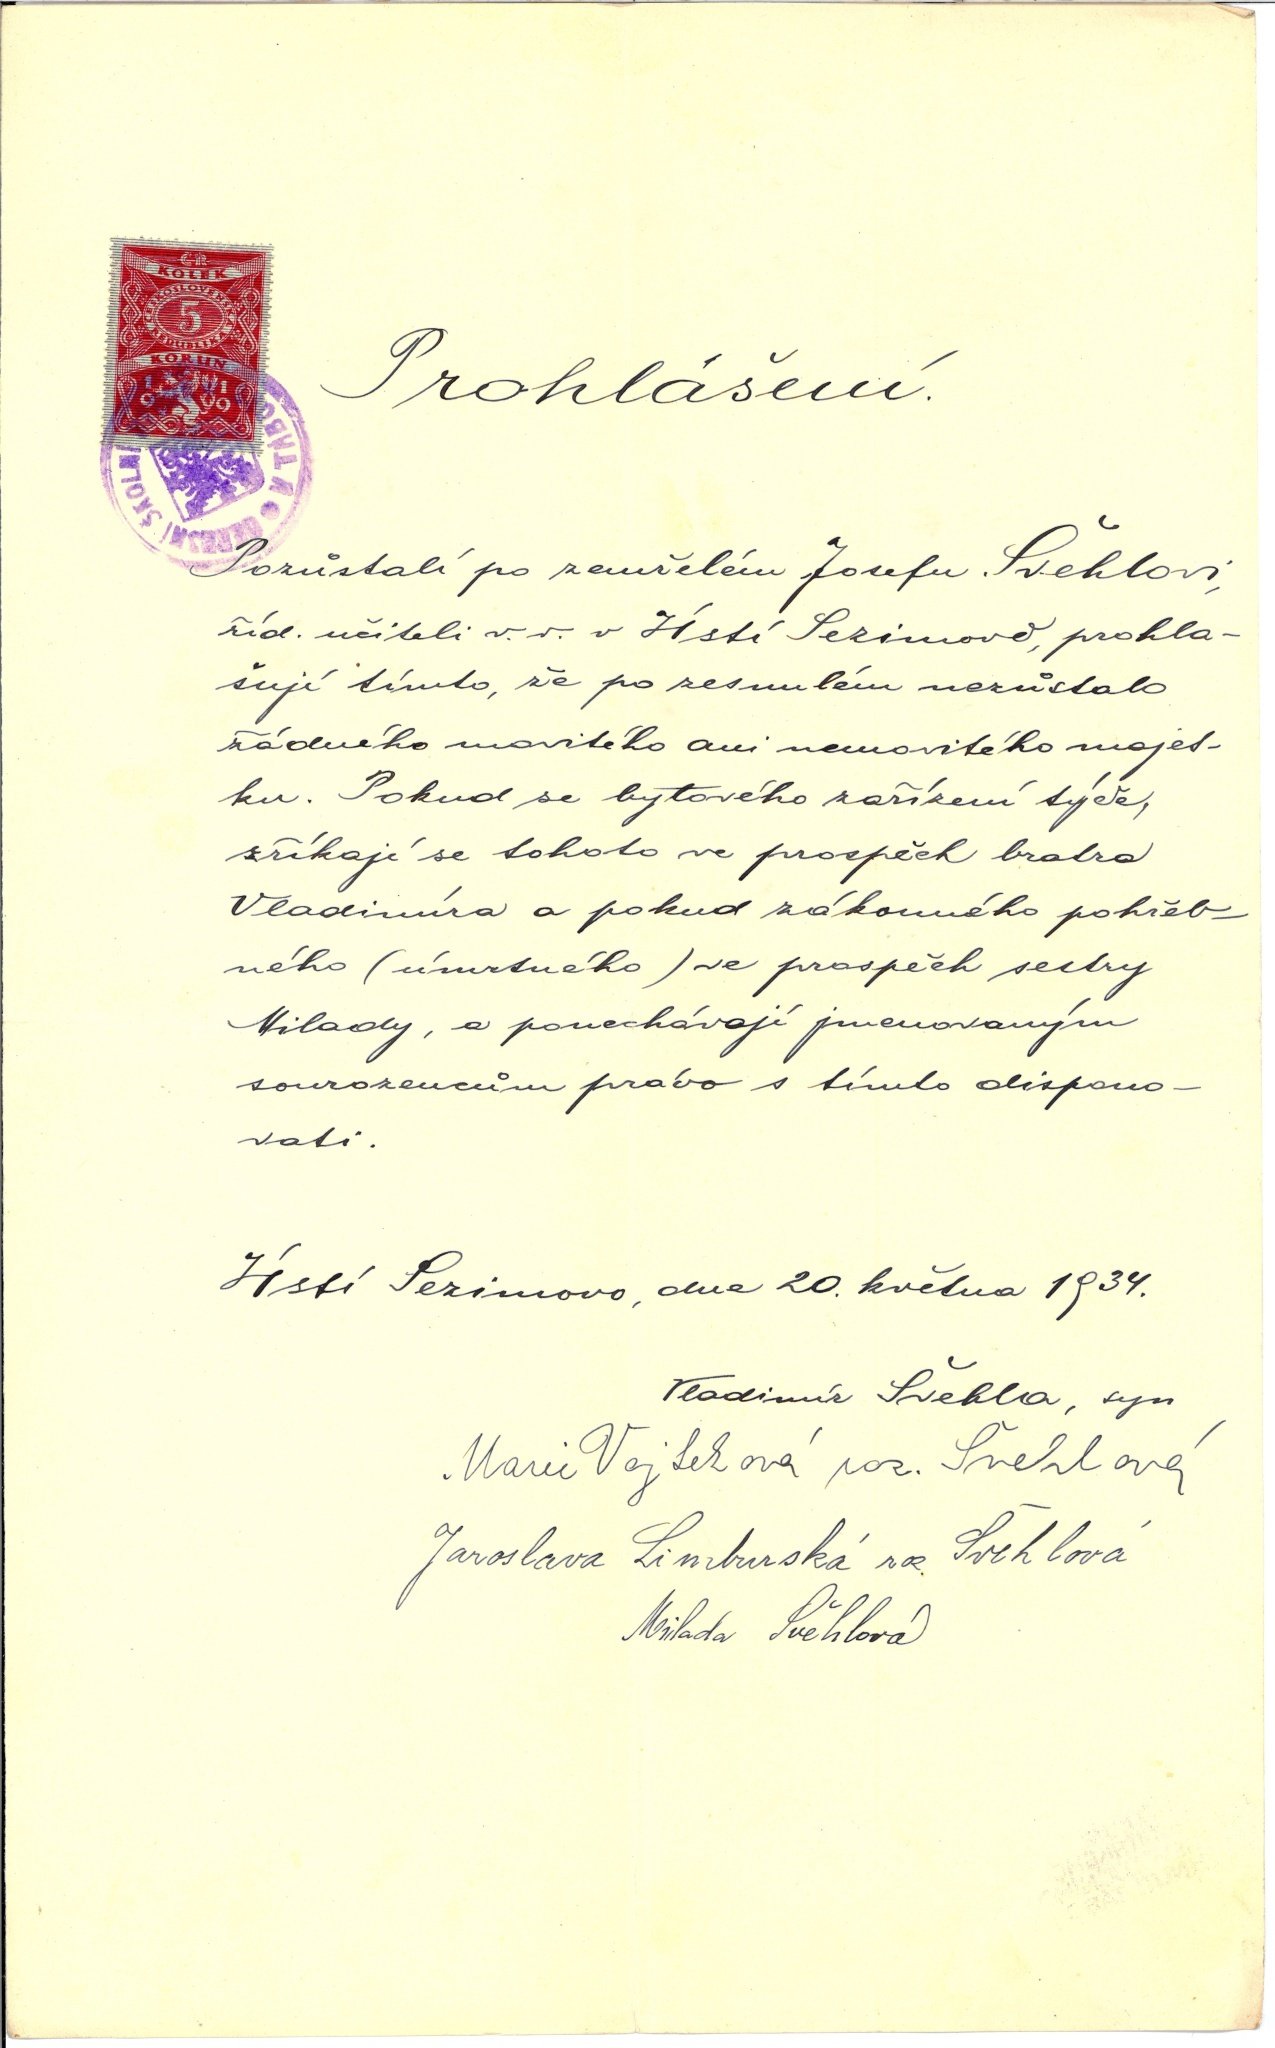 ČR
KOLEK
ČESKOSLOVENSKÁ
5
REPUBLIKA
KORUN
1919
OKRESNÍ ŠKOLNÍ TÁBO
Prohlášení.
Pozůstalí po zemřelém Josefu Švehlovi,
říd. učiteli v. v. v Ústí Sezimově, prohla-
šují tímto, že po zesnulém nezůstalo
žádného movitého ani nemovitého majet-
ku. Pokud se bytového zařízení týče,
zříkají se tohoto ve prospěch bratra
Vladimíra a pokud zákonného pohřeb-
ného (úmrtného) ve prospěch sestry
Milady, a ponechávají jmenovaným
sourozencům právo s tímto dispono-
vati.
Ústí Sezimovo, dne 20. května 1934.
Vladimír Švehla, syn
Marie Vojtěková roz. Švehlová
Jaroslava Limburská roz. Švehlová
Milada Švehlová